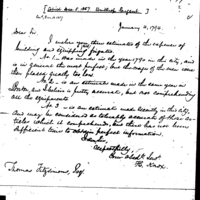 January 11, 1794
Sir,
I enclose you three estimates of the expence of building and equipping frigates.
No. 1. was made in the year 1790 in this city, and is in general the most perfect, but the wages of the men were then placed greatly too low.
No. 2. is an estimate made in the same year in Boston, but which is pretty accurate, but not comprehending all the equipments.
No. 3 is an estimate made lately in this city, and may be considered as tolerably accurate of those articles which it comprehends, but there has not been sufficient time to obtain perfect information.
I am Sir,
respectfully,
Your obedt Servt
H. Knox
Thomas Fitzsimons, Esq